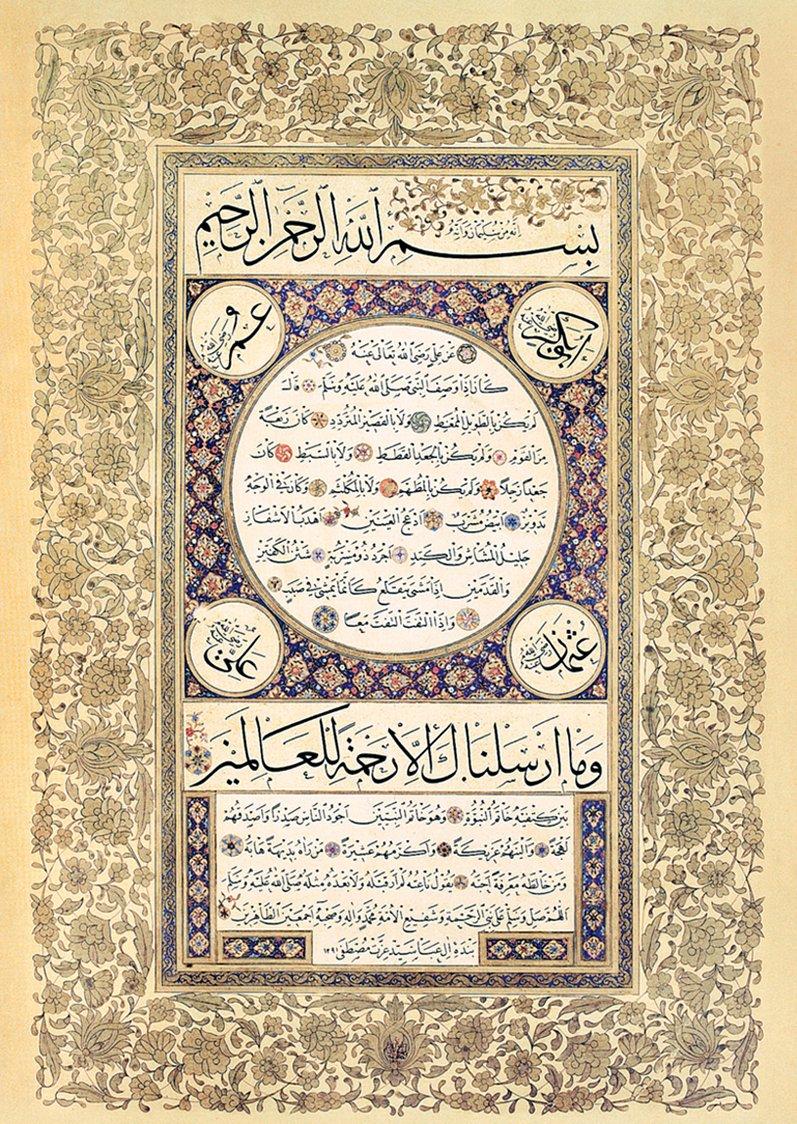 انه من سليمان وانه
بسم الله الرحمن الرحيم
ابوبكر رضي الله عنه
عمر رضي الله عنه
عن علي رضي الله تعالى عنه
كان اذا وصف النبي صلى الله عليه وسلم قال
لم يكن بالطويل الممغط ولا بالقصير المتردد كان ربعة
من القوم ولم يكن بالجعد القطط ولا بالسبط كان
جعدا رجلا ولم يكن بالمطهم ولا بالمكلثم وكان في الوجه
تدوير ابيض مشرب ادعج العينين اهدب الاشفار
جليل المشاش والكتد اجرد ذو مسربة شثن الكفين
والقدمين اذا مشى يتقلع كانما يمشي في صبب
واذا التفت التفت معا
عثمان رضي الله عنه
علي رضي الله عنه
وما ارسلناك الا رحمة للعالمين
بين كتفيه خاتم النبوة وهو خاتم النبيين اجود الناس صدرا واصدقهم
لهجة والينهم عريكة واكرمهم عشيرة من رآه بديهة هابه
ومن خالطه معرفة احبه يقول ناعته لم ار قبله ولا بعده مثله صلى الله عليه وسلم
اللهم صل وسلم على نبي الرحمة وشفيع الامة محمد واله وصحبه اجمعين الطاهرين
بنده آل عبا سيد عزت مصطفى ١٢٩١